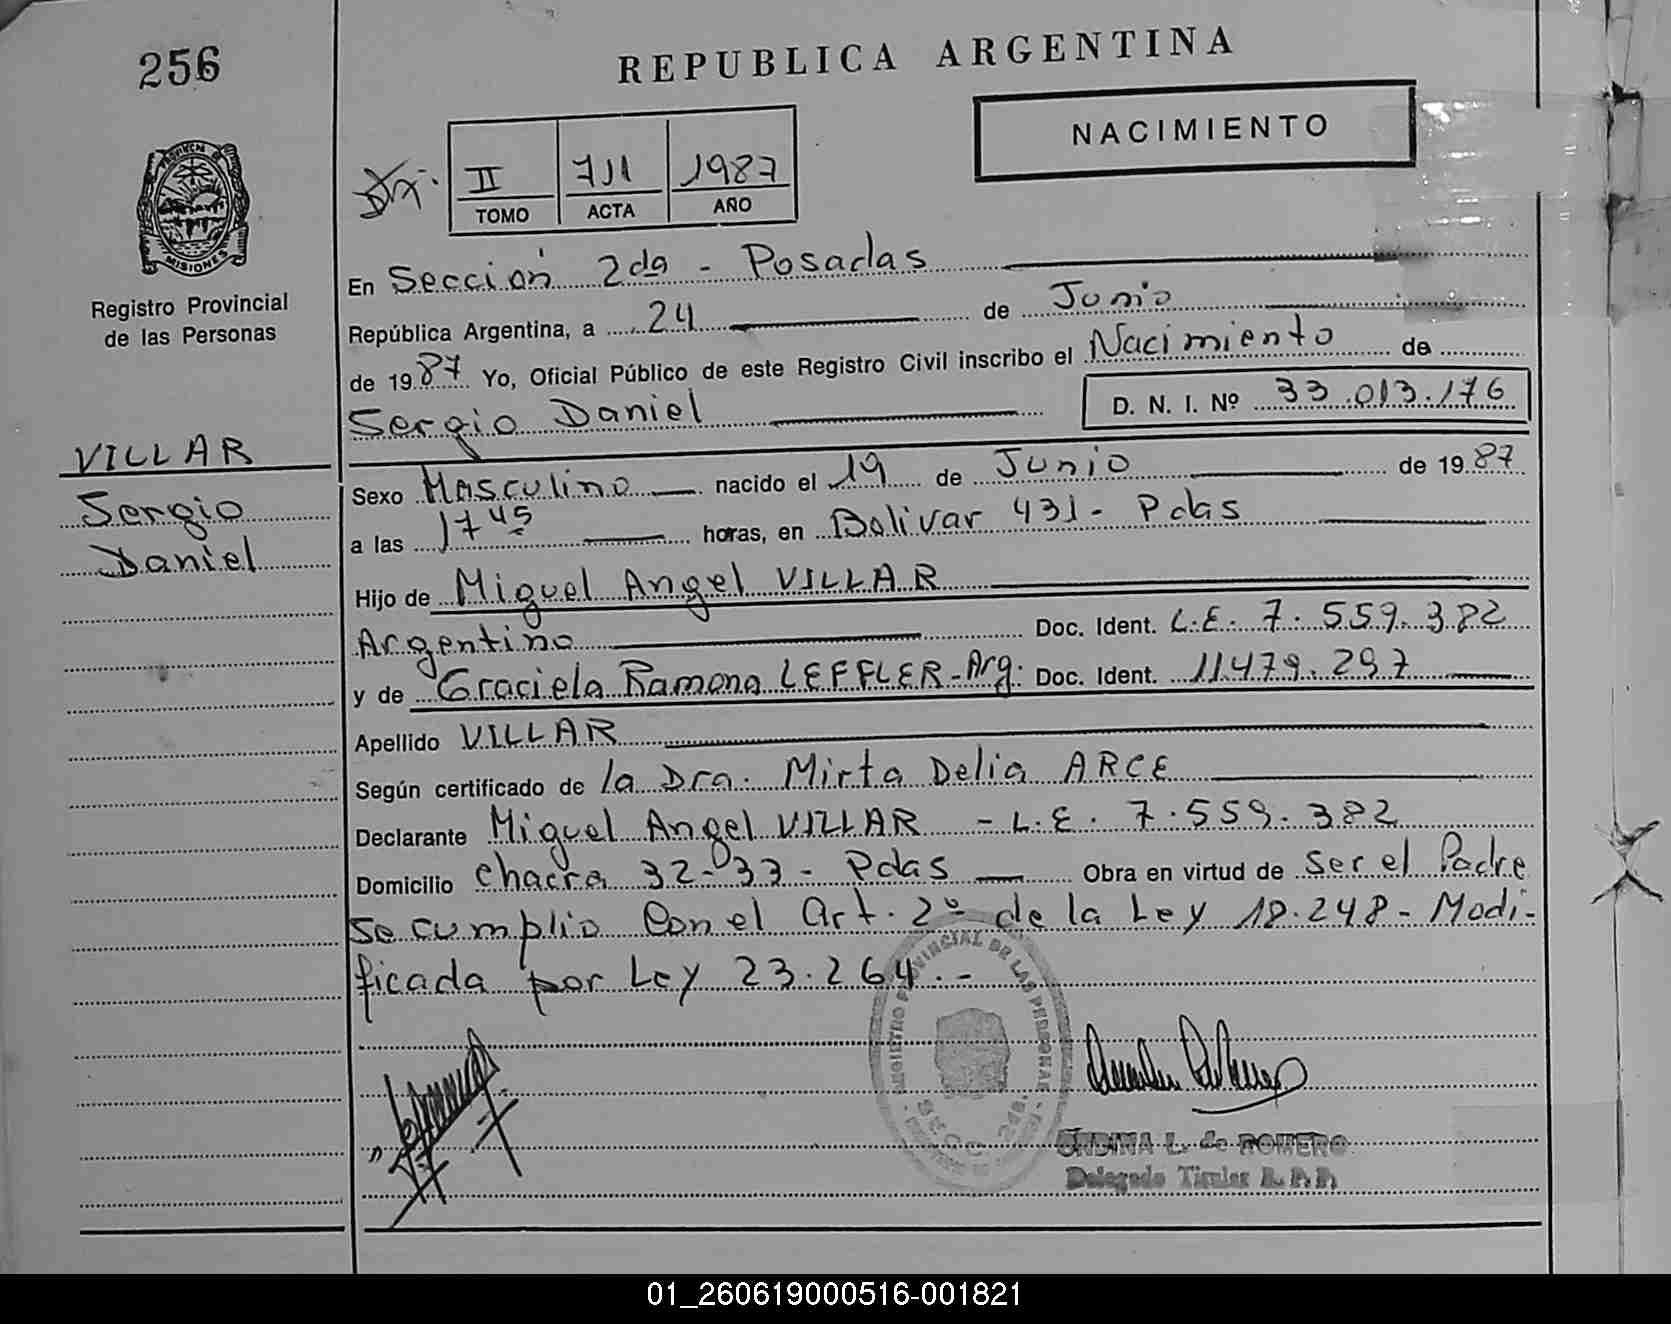 256
REPUBLICA ARGENTINA
NACIMIENTO
II 711 1987
TOMO ACTA AÑO
PROVINCIA DE
MISIONES
Registro Provincial
de las Personas
VILLAR
Sergio
Daniel
En Sección 2da - Posadas
República Argentina, a 24 de Junio
de 1987 Yo, Oficial Público de este Registro Civil inscribo el Nacimiento de
Sergio Daniel D. N. I. Nº 33.013.176
Sexo Masculino nacido el 19 de Junio de 1987
a las 17 45 horas, en Bolivar 431 - Pdas
Hijo de Miguel Angel VILLAR
Argentino Doc. Ident. L.E. 7.559.382
y de Graciela Ramona LEFFLER - Arg. Doc. Ident. 11.479.297
Apellido VILLAR
Según certificado de la Dra. Mirta Delia ARCE
Declarante Miguel Angel VILLAR - L.E. 7.559.382
Domicilio chacra 32-33 - Pdas Obra en virtud de Ser el Padre
Se cumplio Con el Art. 2º de la Ley 18.248 - Modi-
ficada por Ley 23.264.-
REGISTRO PROVINCIAL DE LAS PERSONAS
ONDINA L. de ROMERO
Delegado Titular R. P. P.
01_260619000516-001821